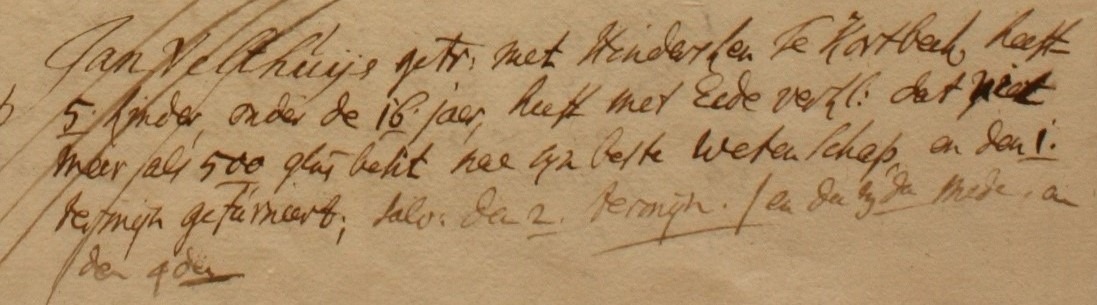 Jan Velthuijs getr: met Hindersken Te Kortbeek, heeft
5. kinder, onder de 16. jaer, heeft met Eede verkl: dat niet
meer als 500 glns besit nae sijn beste Wetenschap, en den 1.
termijn gefurneert; salv: den 2. termijn. / en den 3den mede, en
den 4den